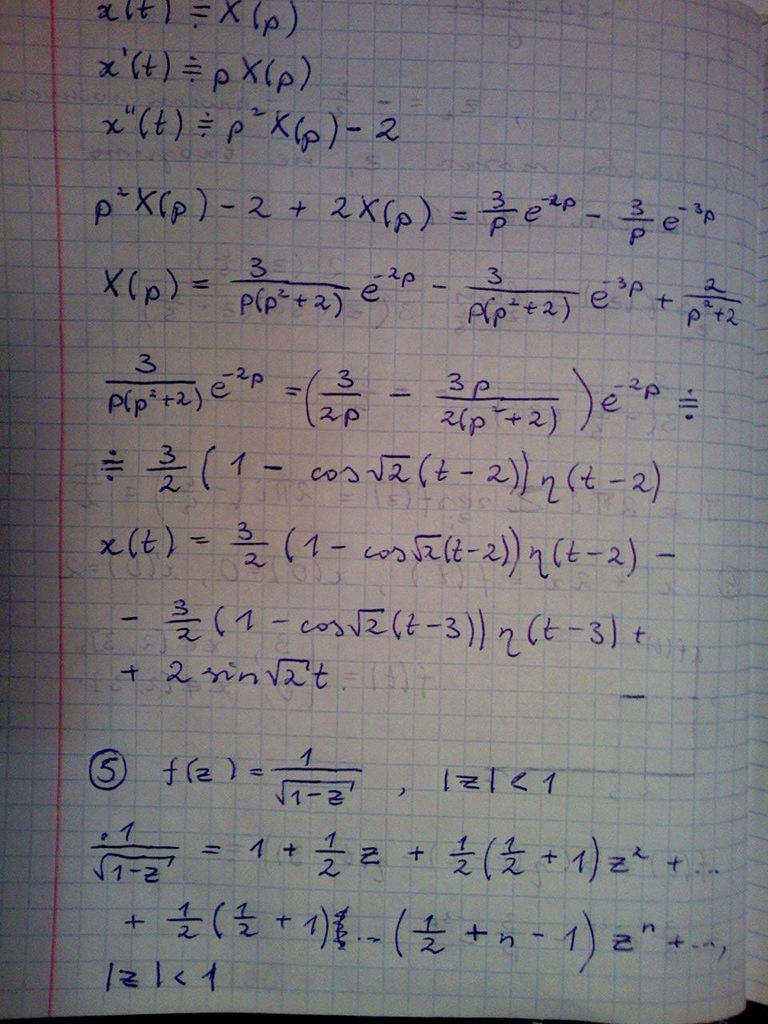 x(t) ≑ X(p)
x'(t) ≑ pX(p)
x''(t) ≑ p²X(p) - 2
p²X(p) - 2 + 2X(p) = 3/p e^(-2p) - 3/p e^(-3p)
X(p) = 3/(p(p²+2)) e^(-2p) - 3/(p(p²+2)) e^(-3p) + 2/(p²+2)
3/(p(p²+2)) e^(-2p) = (3/(2p) - 3p/(2(p²+2))) e^(-2p) ≑
≑ 3/2 (1 - cos√2(t-2)) η(t-2)
x(t) = 3/2 (1 - cos√2(t-2)) η(t-2) -
- 3/2 (1 - cos√2(t-3)) η(t-3) +
+ 2 sin√2 t
⑤ f(z) = 1/√(1-z) , |z| < 1
1/√(1-z) = 1 + 1/2 z + 1/2 (1/2 + 1) z² + ...
+ 1/2 (1/2 + 1) ... (1/2 + n - 1) zⁿ + ...,
|z| < 1